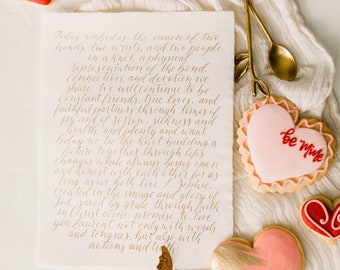 Today embodies the union of two
hands, two hearts, and two people
in a knot, a physical
representation of the bond,
connection, and devotion we
share. We will continue to be
constant friends, true loves, and
faithful partners through times of
joy and of sorrow, sickness and
health, and plenty and want.
Today we tie the knot building a
life together through life's
changes while always being open
and honest with each other for as
long as we both live. I, Sophie,
created in the image and glory of
God, saved by grace through faith
in Christ alone, promise to love
you Laurent not only with words
and tongues, but also with
actions and
be mine